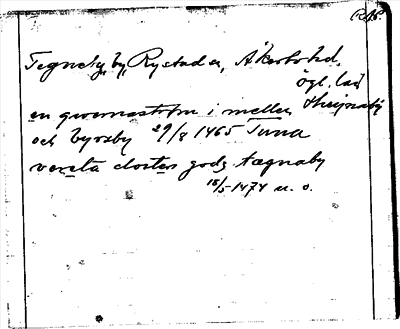 RAP.
Tegneby by, Rystads sn, Åkerbo hd.
ögl. län
en qwernaström i mellen Thiignaby
och byrsby 29/8 1465 Tuna
vereta closters godz tægnaby
18/5 1474 u. o.